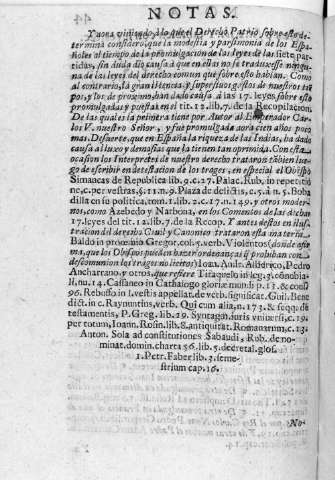 NOTAS.
Y aora viniendo a lo que el Derecho Patrio sobre esto de-
termina constarò, que la modestia y parsimonia de los Espa-
ñoles al tiempo de la promulgacion de las leyes de las siete par-
tidas, sin duda diò causa à que en ellas no se traduxesse nongu-
na de las leyes del derecho comun que sobre esto hablan. Como
al contrario, la gran licencia y superfluos gastos de nuestros tiē-
pos, y los de proximo han dado causa à las 17. leyes, sobre esto
promulgadas y puestas en el tit. 12. lib. 7. de la Recopilacion.
De las quales la primera tiene por Autor al Emperador Car-
los V. nuestro Señor, y fue promulgada aora cien años poco
mas. De suerte, que en España la riqueza de las Indias, ha dado
causa al luxo y demasias que la tienen tan oprimida. Con esta
ocasion los Interpretes de nuestro derecho trataron tābien lue-
go de escribir en detestacion de los trages, en especial el Obispo
Simancas de Republica lib. 9. c. 17. Palac. Rub. in repetitio
ne, c. per vestras, §. 11. n. 9. Plaza de delictis, c. 5. à n. 5. Boba
dilla en su politica, tom. 1. lib. 2. c. 17. n. 149. y otros moder-
nos, como Azebedo y Narbona, en los Comentos de las dichas
17. leyes del tit. 12. lib. 7. de la Recop. Y antes destos en Ilus-
tracion del derecho Civil y Canonico trataron esta materia
Baldo in proœmio Gregor. col. 5. verb. Violentos (donde afir-
ma, que los Obispos pueden hazer ordenanças q̃ prohiban con
descomunion los trages no licitos) Ioan. Andr. Alberico, Pedro
Ancharrano, y otros, que refiere Tiraquelo in leg. 3. cõnubia-
li, nu. 14. Cassaneo in Cathalogo gloriæ mundi p. 13. & cons.
96. Rebuffo in l. vestis appellat. de verb. significat. Guil. Bene
dict. in c. Raynutius, verb. Qui cum alia, n. 173. & seqq. de
testamentis, P. Greg. lib. 29. Syntagm. iuris vniversi, c. 19.
per totum, Ioann. Rosin. lib. 8. antiquitat. Romanarum, c. 13.
Anton. Sola ad constitutiones Sabaudi, Rub. de no-
minat. domin. charta 56. lib. 5. decretal. glos.
1. Petr. Faber lib. 3. seme-
strium cap. 16.
No-